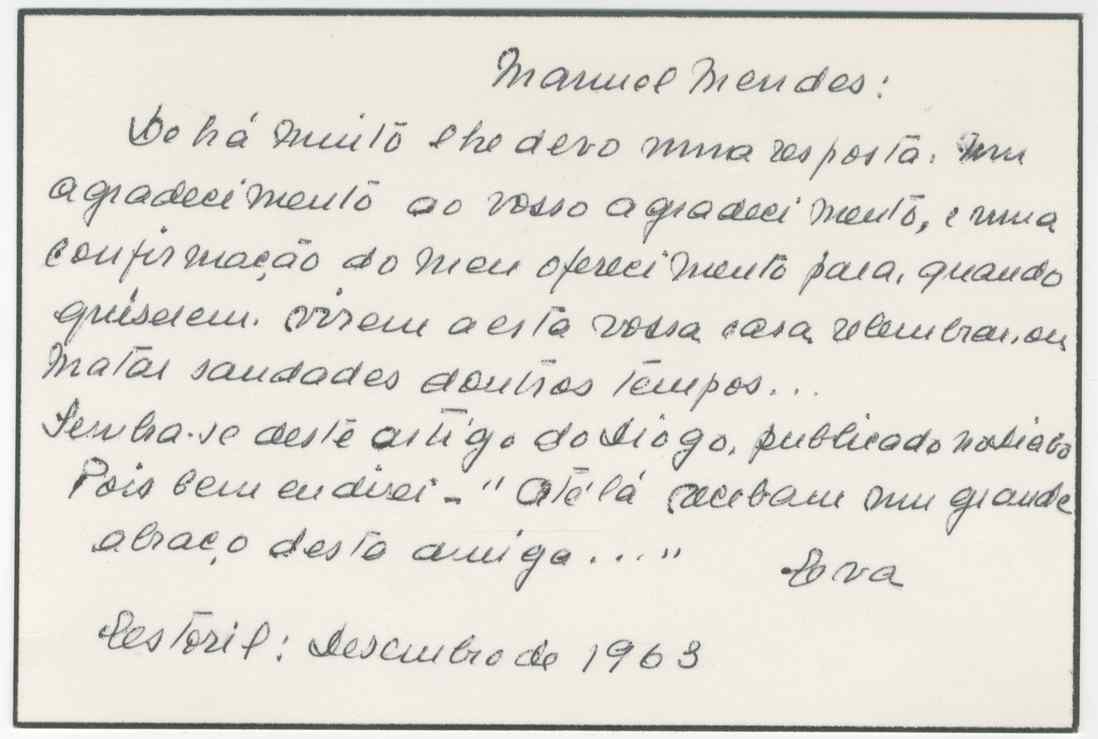 Manuel Mendes:
De há muito lhe devo uma resposta. Um
agradecimento ao vosso agradecimento, e uma
confirmação do meu oferecimento para, quando
quiserem. virem a esta vossa casa relembrar, ou
matar saudades doutros tempos...
Lembra-se deste artigo do Diogo, publicado no Diabo
Pois bem eu direi - "Até lá recebam um grande
abraço desta amiga...."
Eva
Estoril: Desembro de 1963